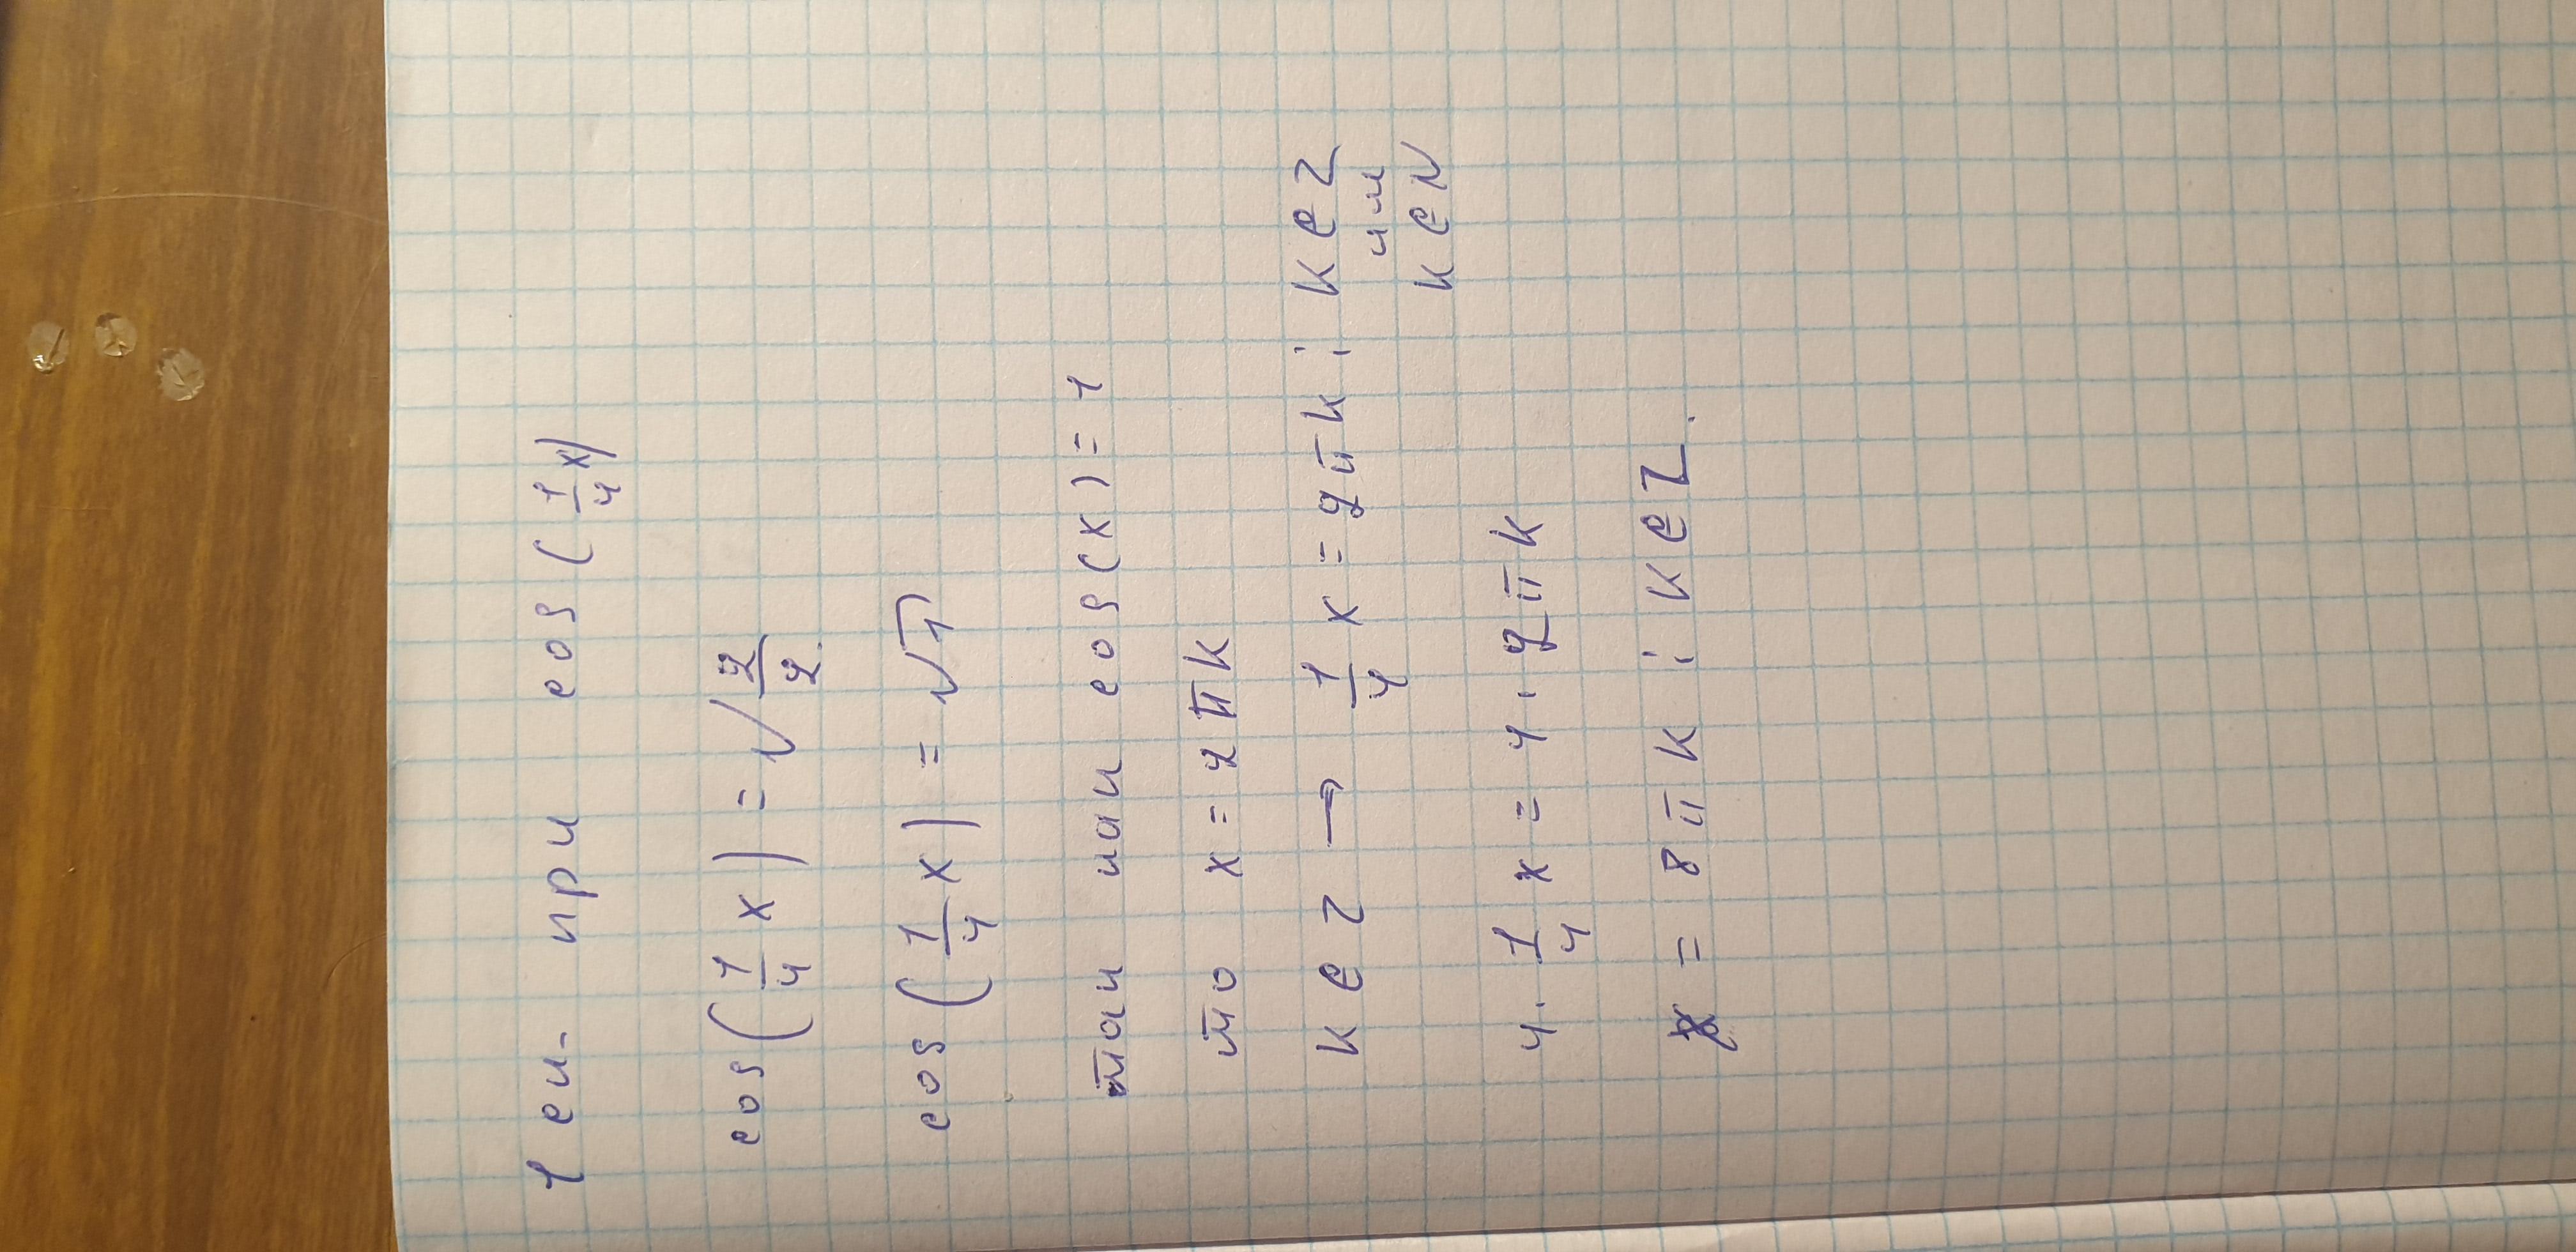 1 сл. при cos(1/4 x)
cos(1/4 x) = √(2/2)
cos(1/4 x) = √1
так как cos(x) = 1
то x = 2πk
k ∈ Z → 1/4 x = 2πk; k ∈ Z
или
k ∈ N
4 · 1/4 x = 4 · 2πk
x = 8πk; k ∈ Z.